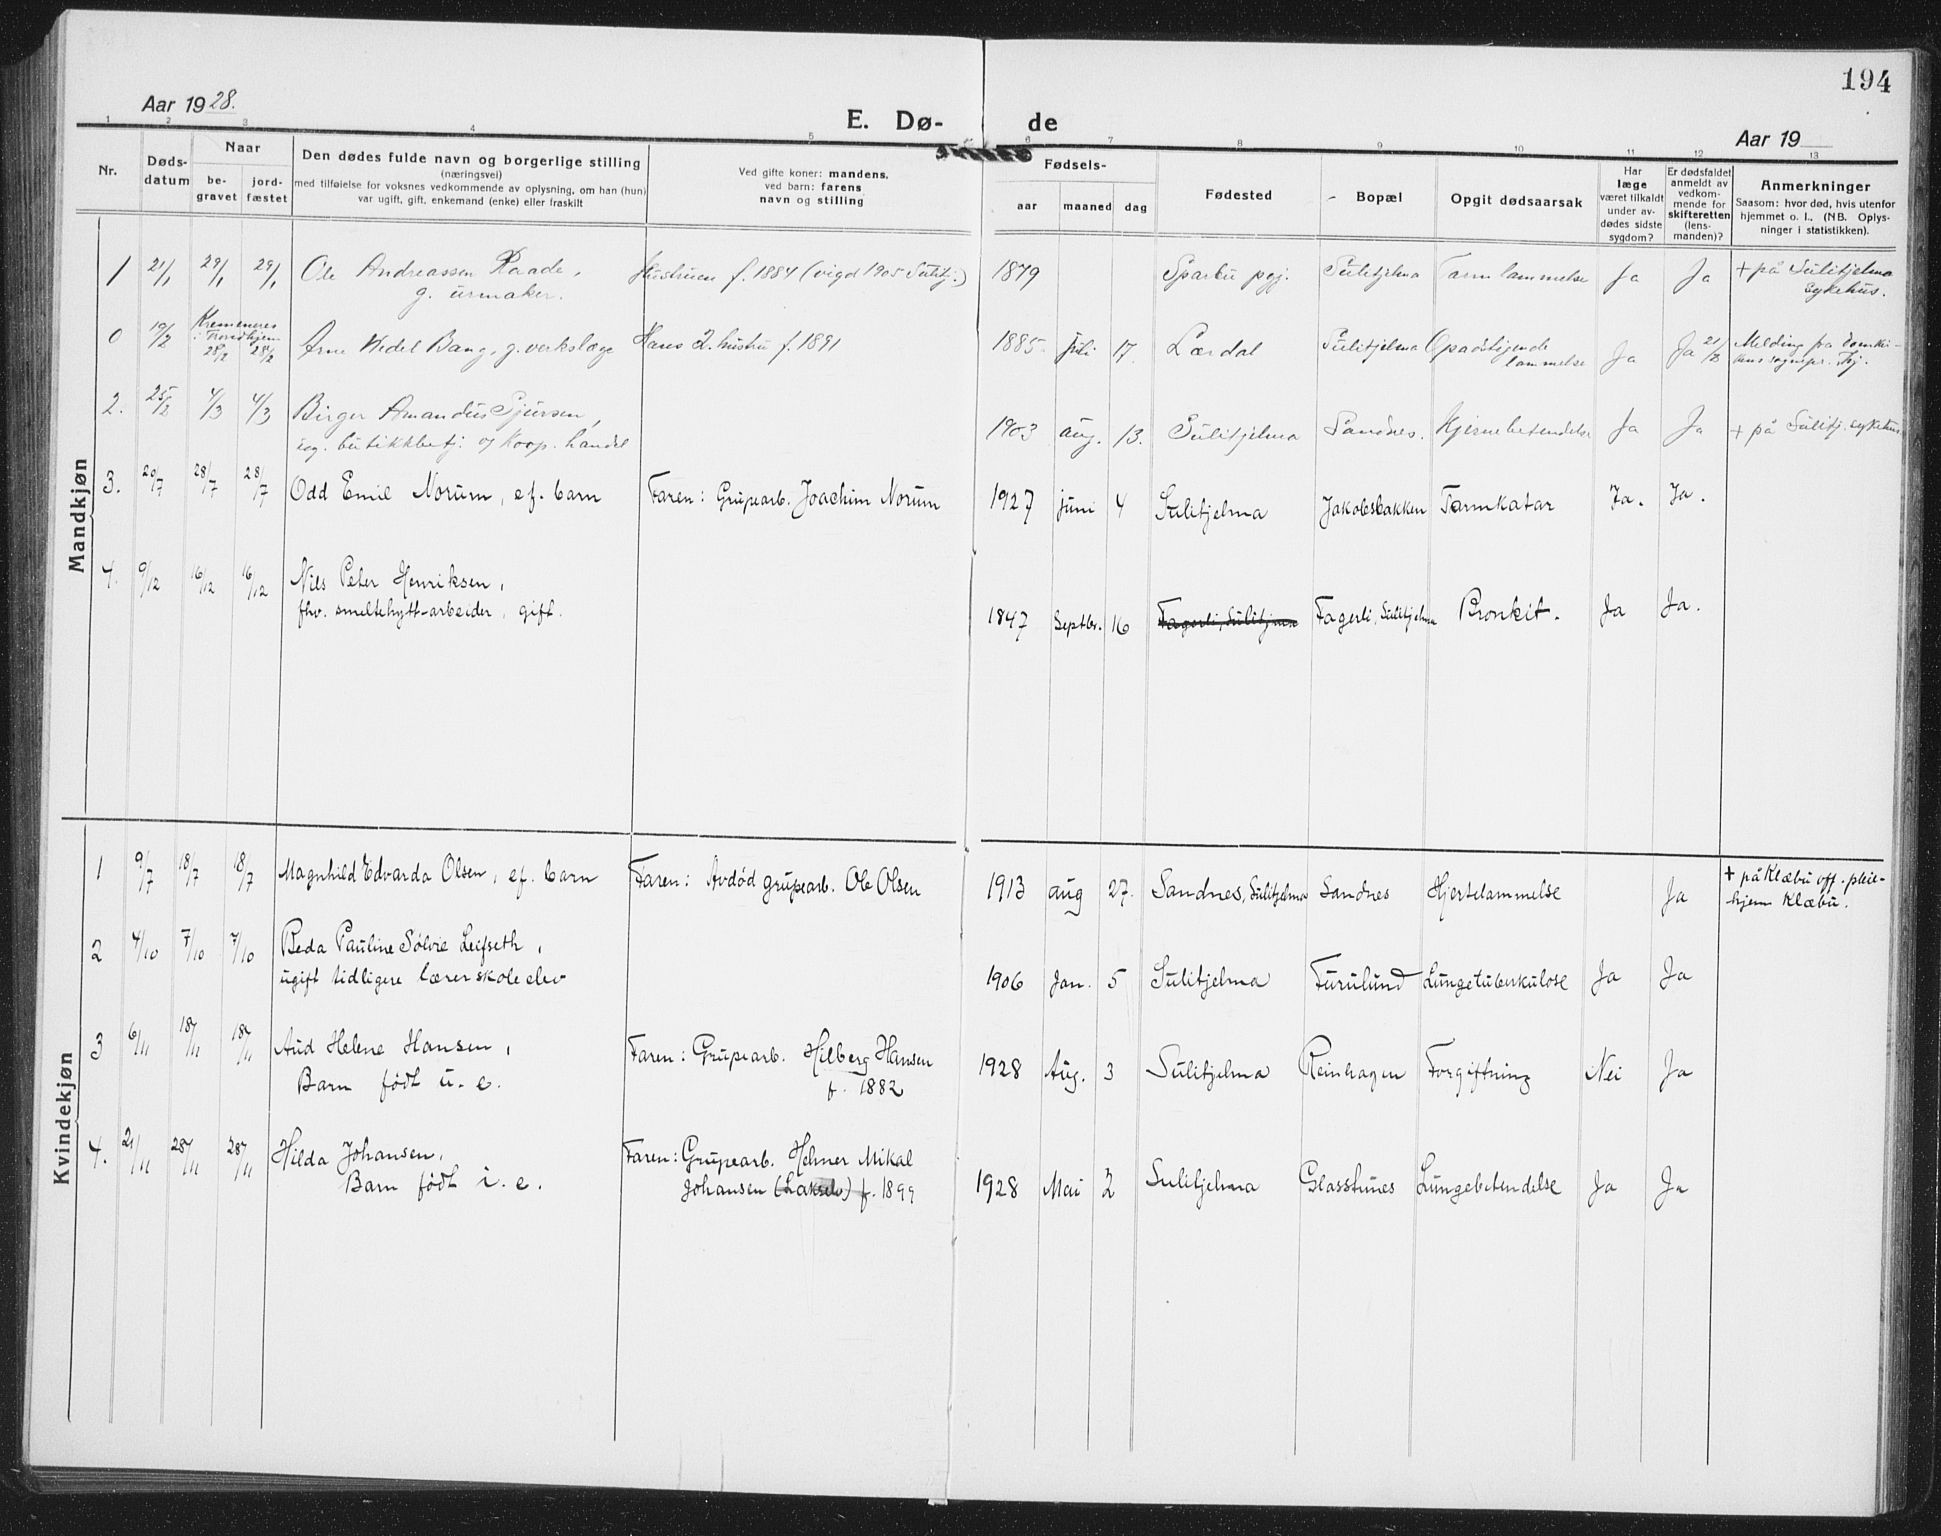 194
Aar 1928.
E. Dø-
de
Aar 19
1 2 3 4 5 6 7 8 9 10 11 12 13
Nr.
Døds-
datum
Naar
be-
gravet
jord-
fæstet
Den dødes fulde navn og borgerlige stilling
(næringsvei)
med tilføielse for voksnes vedkommende av oplysning, om han (hun)
var ugift, gift, enkemand (enke) eller fraskilt
Ved gifte koner: mandens,
ved barn: farens
navn og stilling
Fødsels-
aar maaned dag
Fødested
Bopæl
Opgit dødsaarsak
Har
læge
været tilkaldt
under av-
dødes sidste
sygdom?
Er dødsfaldet
anmeldt av
vedkom-
mende for
skifteretten
(lens-
manden)?
Anmerkninger
Saasom: hvor død, hvis utenfor
hjemmet o. l., (NB. Oplys-
ninger i statistikken).
Mandkjøn
1 21/1 29/1 29/1 Ole Andreassen Raade, Hustruen f. 1884 (vigd 1905 Sulitj.) 1879 Sparbu pgj. Sulitjelma Tarmlammelse Ja Ja + på Sulitjelma
g. urmaker. sykehus.
0 19/2 28/2 28/2 Arne Wedel Bang, g. verkslæge Hans 2. hustru f. 1891 1885 juli 17. Lærdal Sulitjelma Opadstigende Ja Ja Melding fra domkir-
lammelse
2. 25/2 4/3 4/3 Birger Amandus Sjursen, 1903 aug. 13. Sulitjelma Sandnes. Hjernebetendelse Ja Ja + på Sulitj. sykehus
ug. butikkbetj. og Koop. handel
3. 20/7 28/7 28/7 Odd Emil Norum, ef. barn Faren: Grupearb. Joachim Norum 1927 juni 4 Sulitjelma Jakobsbakken Tarmkatar Ja. Ja.
4. 9/12 16/12 16/12 Nils Peter Henriksen,
fhv. smeltehytt-arbeider, gift. 1847 Septbr. 16 Fagerli, Sulitjelma Fagerli, Sulitjelma Bronkit. Ja Ja.
Kvindekjøn
1 9/7 18/7 18/7 Magnhild Edvarda Olsen, ef. barn Faren: Avdød grupearb. Ole Olsen 1913 aug 27. Sandnes, Sulitjelma Sandnes Hjertelammelse Ja + på Klæbu off. pleie-
hjem Klæbu.
2 4/10 7/10 7/10 Beda Pauline Sølvie Leifseth,
ugift tidligere lærerskoleelev 1906 Jan. 5 Sulitjelma Furulund Lungetuberkulose Ja Ja
3 6/11 18/11 18/11 Aud Helene Hansen, Faren: Grupearb. Hilberg Hansen 1928 Aug. 3 Sulitjelma Reinhagen Forgiftning Nei Ja
Barn født u. e. f. 1882
4. 21/11 28/11 28/11 Hilda Johansen, Faren: Grupearb. Helmer Mikal
Barn født i. e. Johansen (Lakselv) f. 1899 1928 Mai 2 Sulitjelma Glasstunes Lungebetendelse Ja Ja